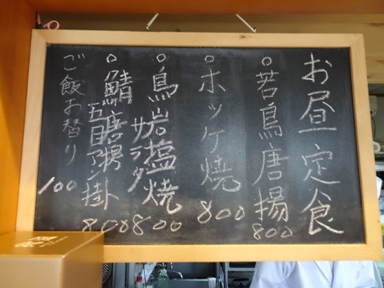 お昼定食
○若鳥唐揚 800
○ホッケ焼 800
○鳥岩塩焼 サラダ 800
○鯖唐揚 五目アン掛 800
ご飯お替り 100